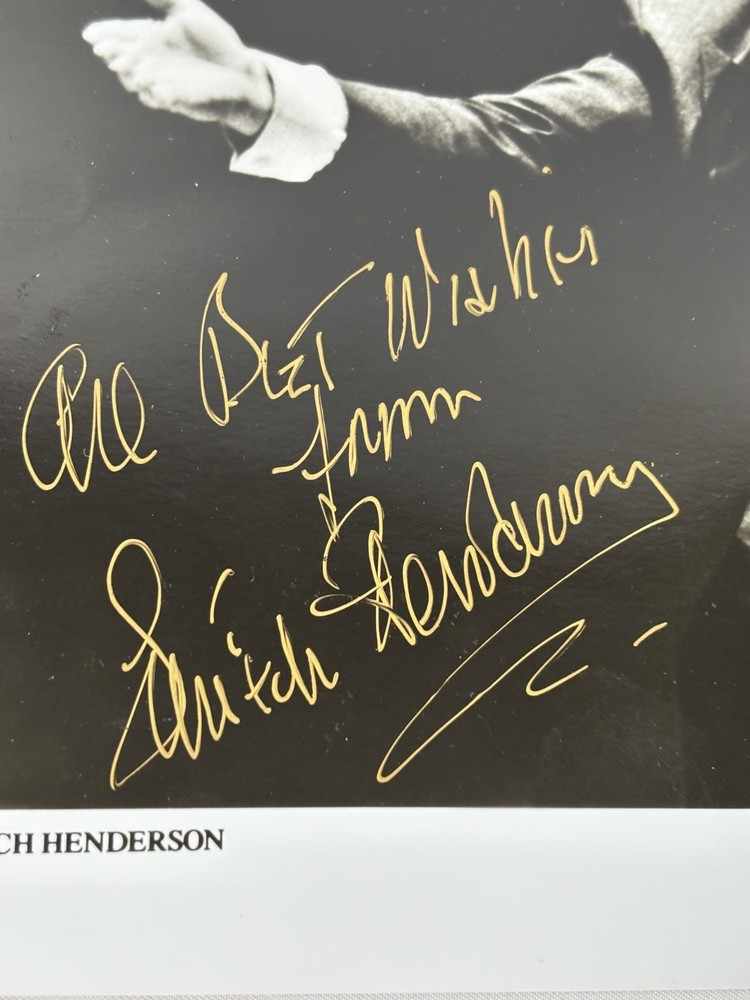 All Best Wishes
from
Skitch Henderson
CH HENDERSON